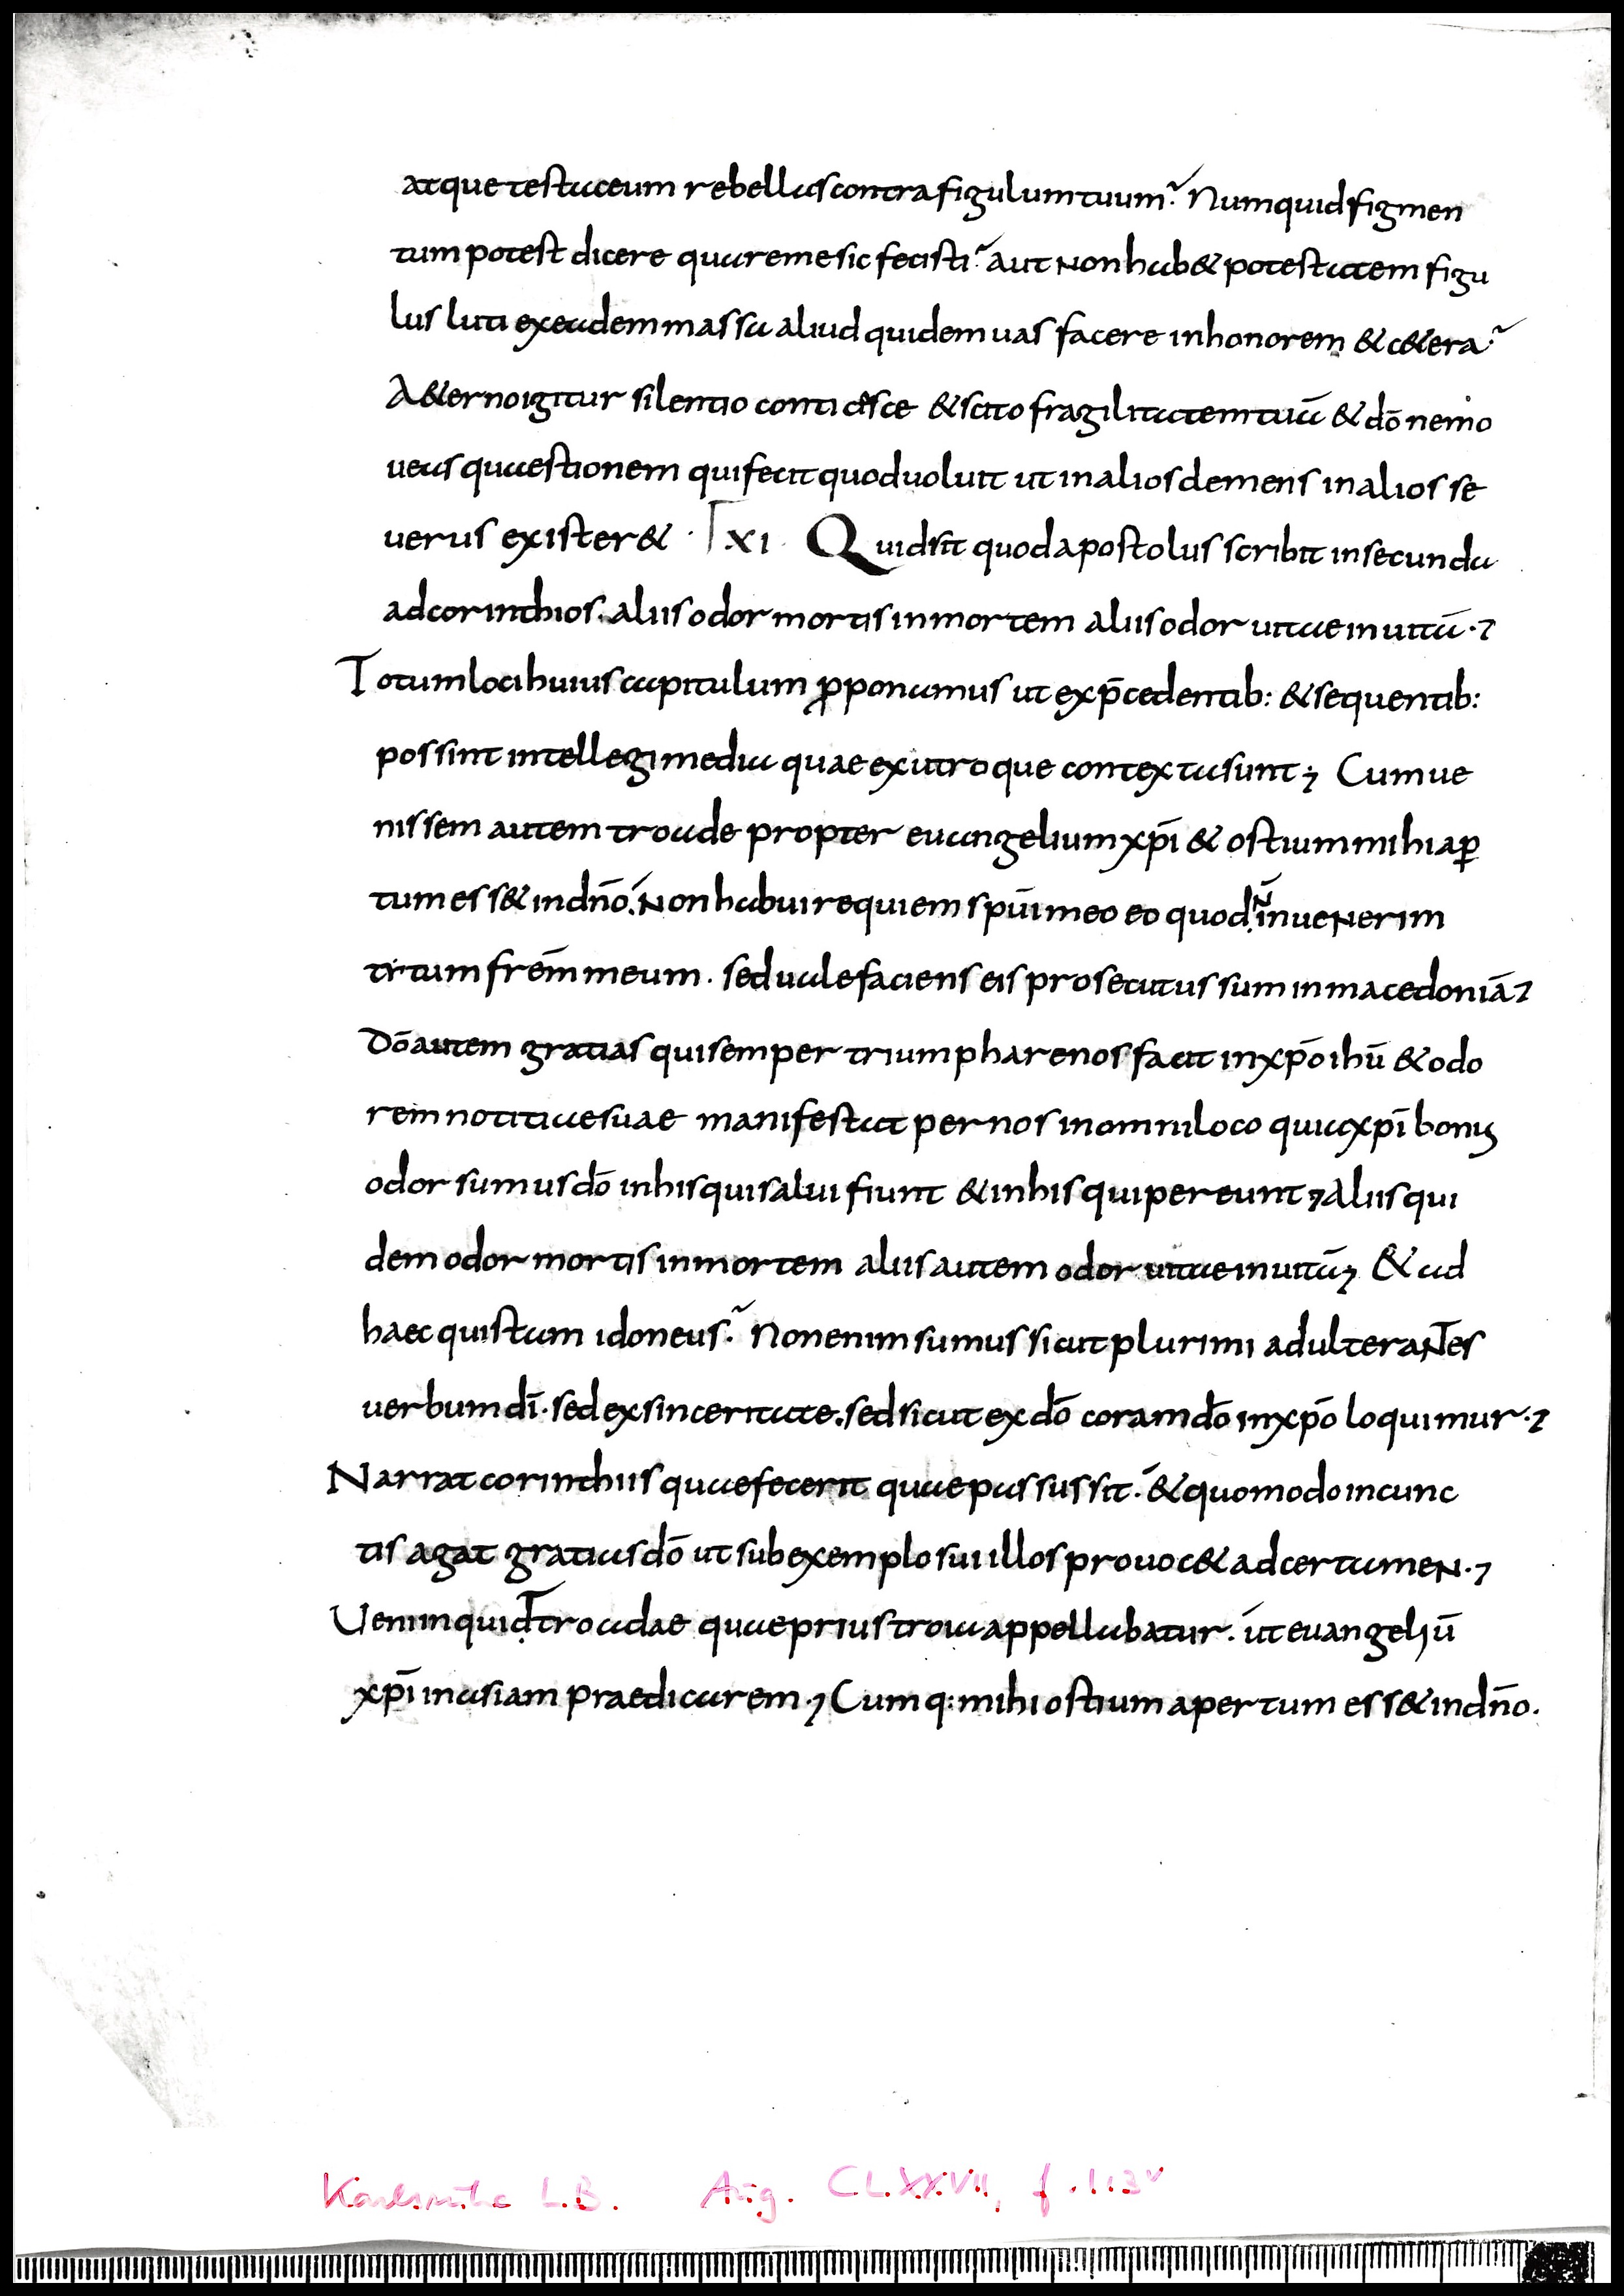 atque testaceum rebellas contra figulum tuum? Numquid figmen
tum potest dicere quare me sic fecisti? aut non hab& potestatem figu
lus luti ex eadem massa aliud quidem uas facere in honorem & c&era?
A&erno igitur silentio conticesce & scito fragilitatem tuā & dō ne mo
ueas quaestionem qui fecit quod uoluit ut in alios clemens in alios se
uerus exister& · XI · Quid sit quod apostolus scribit in secunda
ad corinthios. aliis odor mortis in mortem aliis odor uitae in uitā ·7
Totum loci huius capitulum ꝓponamus ut ex p̄cedentib: & sequentib:
possint intellegi media quae ex utroque contexta sunt; Cum ue
nissem autem troade propter euangelium xp̄i & ostium mihi aꝑ
tum ess& in dn̄o. Non habui requiem spūi meo eo quod ñ inuenerim
titum frēm meum. sed ualefaciens eis prosecutus sum in macedoniā7
Dō autem gratias qui semper triumphare nos facit in xp̄o ihū & odo
rem notitiae suae manifestat per nos in omni loco quia xp̄i bonus
odor sumus dō in his qui salui fiunt & in his qui pereunt; Aliis qui
dem odor mortis in mortem aliis autem odor uitae in uitā; & ad
haec quis tam idoneus? Non enim sumus sicut plurimi adulterantes
uerbum dī. sed ex sinceritate. sed sicut ex dō coram dō in xp̄o loquimur ·7
Narrat corinthiis quae fecerit quae passus sit. & quomodo in cunc
tis agat gratias dō ut sub exemplo sui illos prouoc& ad certamen ·7
Ueni inquiT troadae quae prius troia appellabatur. ut euangeliū
xp̄i in asiam praedicarem ·7 Cumq: mihi ostium apertum ess& in dn̄o.
Karlsruhe L.B. Aug. CLXXVII, f. 113v